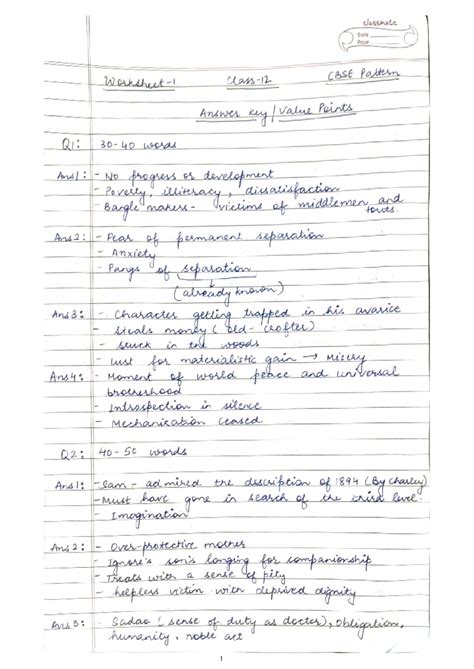 classmate
Date
Page
Worksheet-1 Class-12 CBSE Pattern
Answer Key/Value Points
Q1: 30-40 words
Ans1: - No progress or development
- Poverty, illiteracy, dissatisfaction
- Bangle makers - victims of middlemen and
touts.
Ans2: - Fear of permanent separation
- Anxiety
- Pangs of separation
(already known)
Ans3: - Character getting trapped in his avarice
- Steals money (old-crofter)
- Stuck in the woods
- Lust for materialistic gain → Misery
Ans4: - Moment of world peace and universal
brotherhood
- Introspection in silence
- Mechanization ceased
Q2: 40-50 words
Ans1: - Sam - admired the description of 1894 (By Charley)
- Must have gone in search of the third level.
- Imagination
Ans2: - Over-protective mother
- Ignore's son's longing for companionship
- Treats with a sense of pity
- helpless victim with deprived dignity
Ans3: - Sadao (sense of duty as doctor), obligation,
humanity, noble act
1